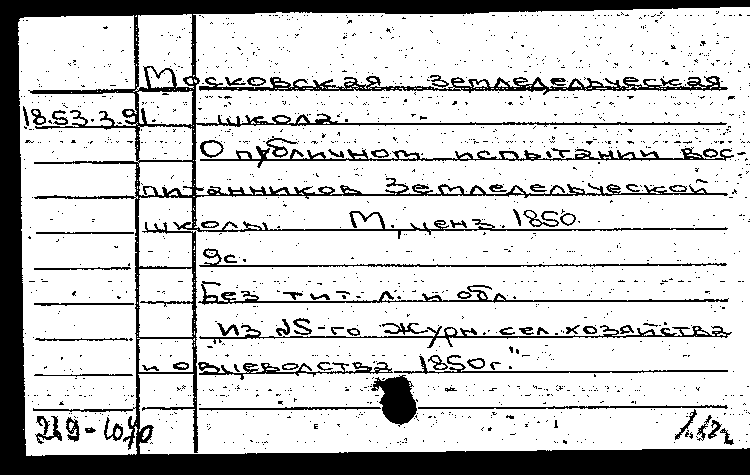 Московская Земледельческая
18.53.3.91. школа.
О публичном испытании вос-
питанников Земледельческой
школы. М., ценз. 1850
9с.
Без тит. л. и обл.
"Из №5-го Журн. сел. хозяйства
и овцеводства 1850г."